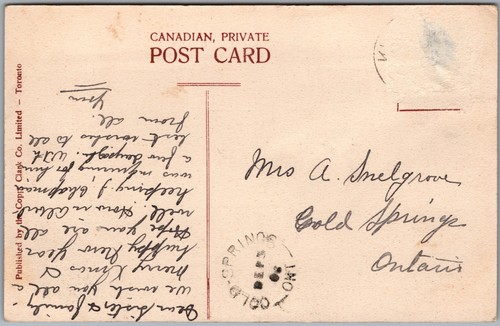 CANADIAN, PRIVATE
POST CARD
Published by the Copp, Clark Co. Limited — Toronto
Dear Sister & family
we wish you all a
merry Xmas &
happy New year
Hope you are all
well. How is
keeping
was
a few days ago. With
best wishes to all
from all.
Mrs A. Snelgrove
Cold Springs
Ontario
COLD-SPRINGS
DE
ONT